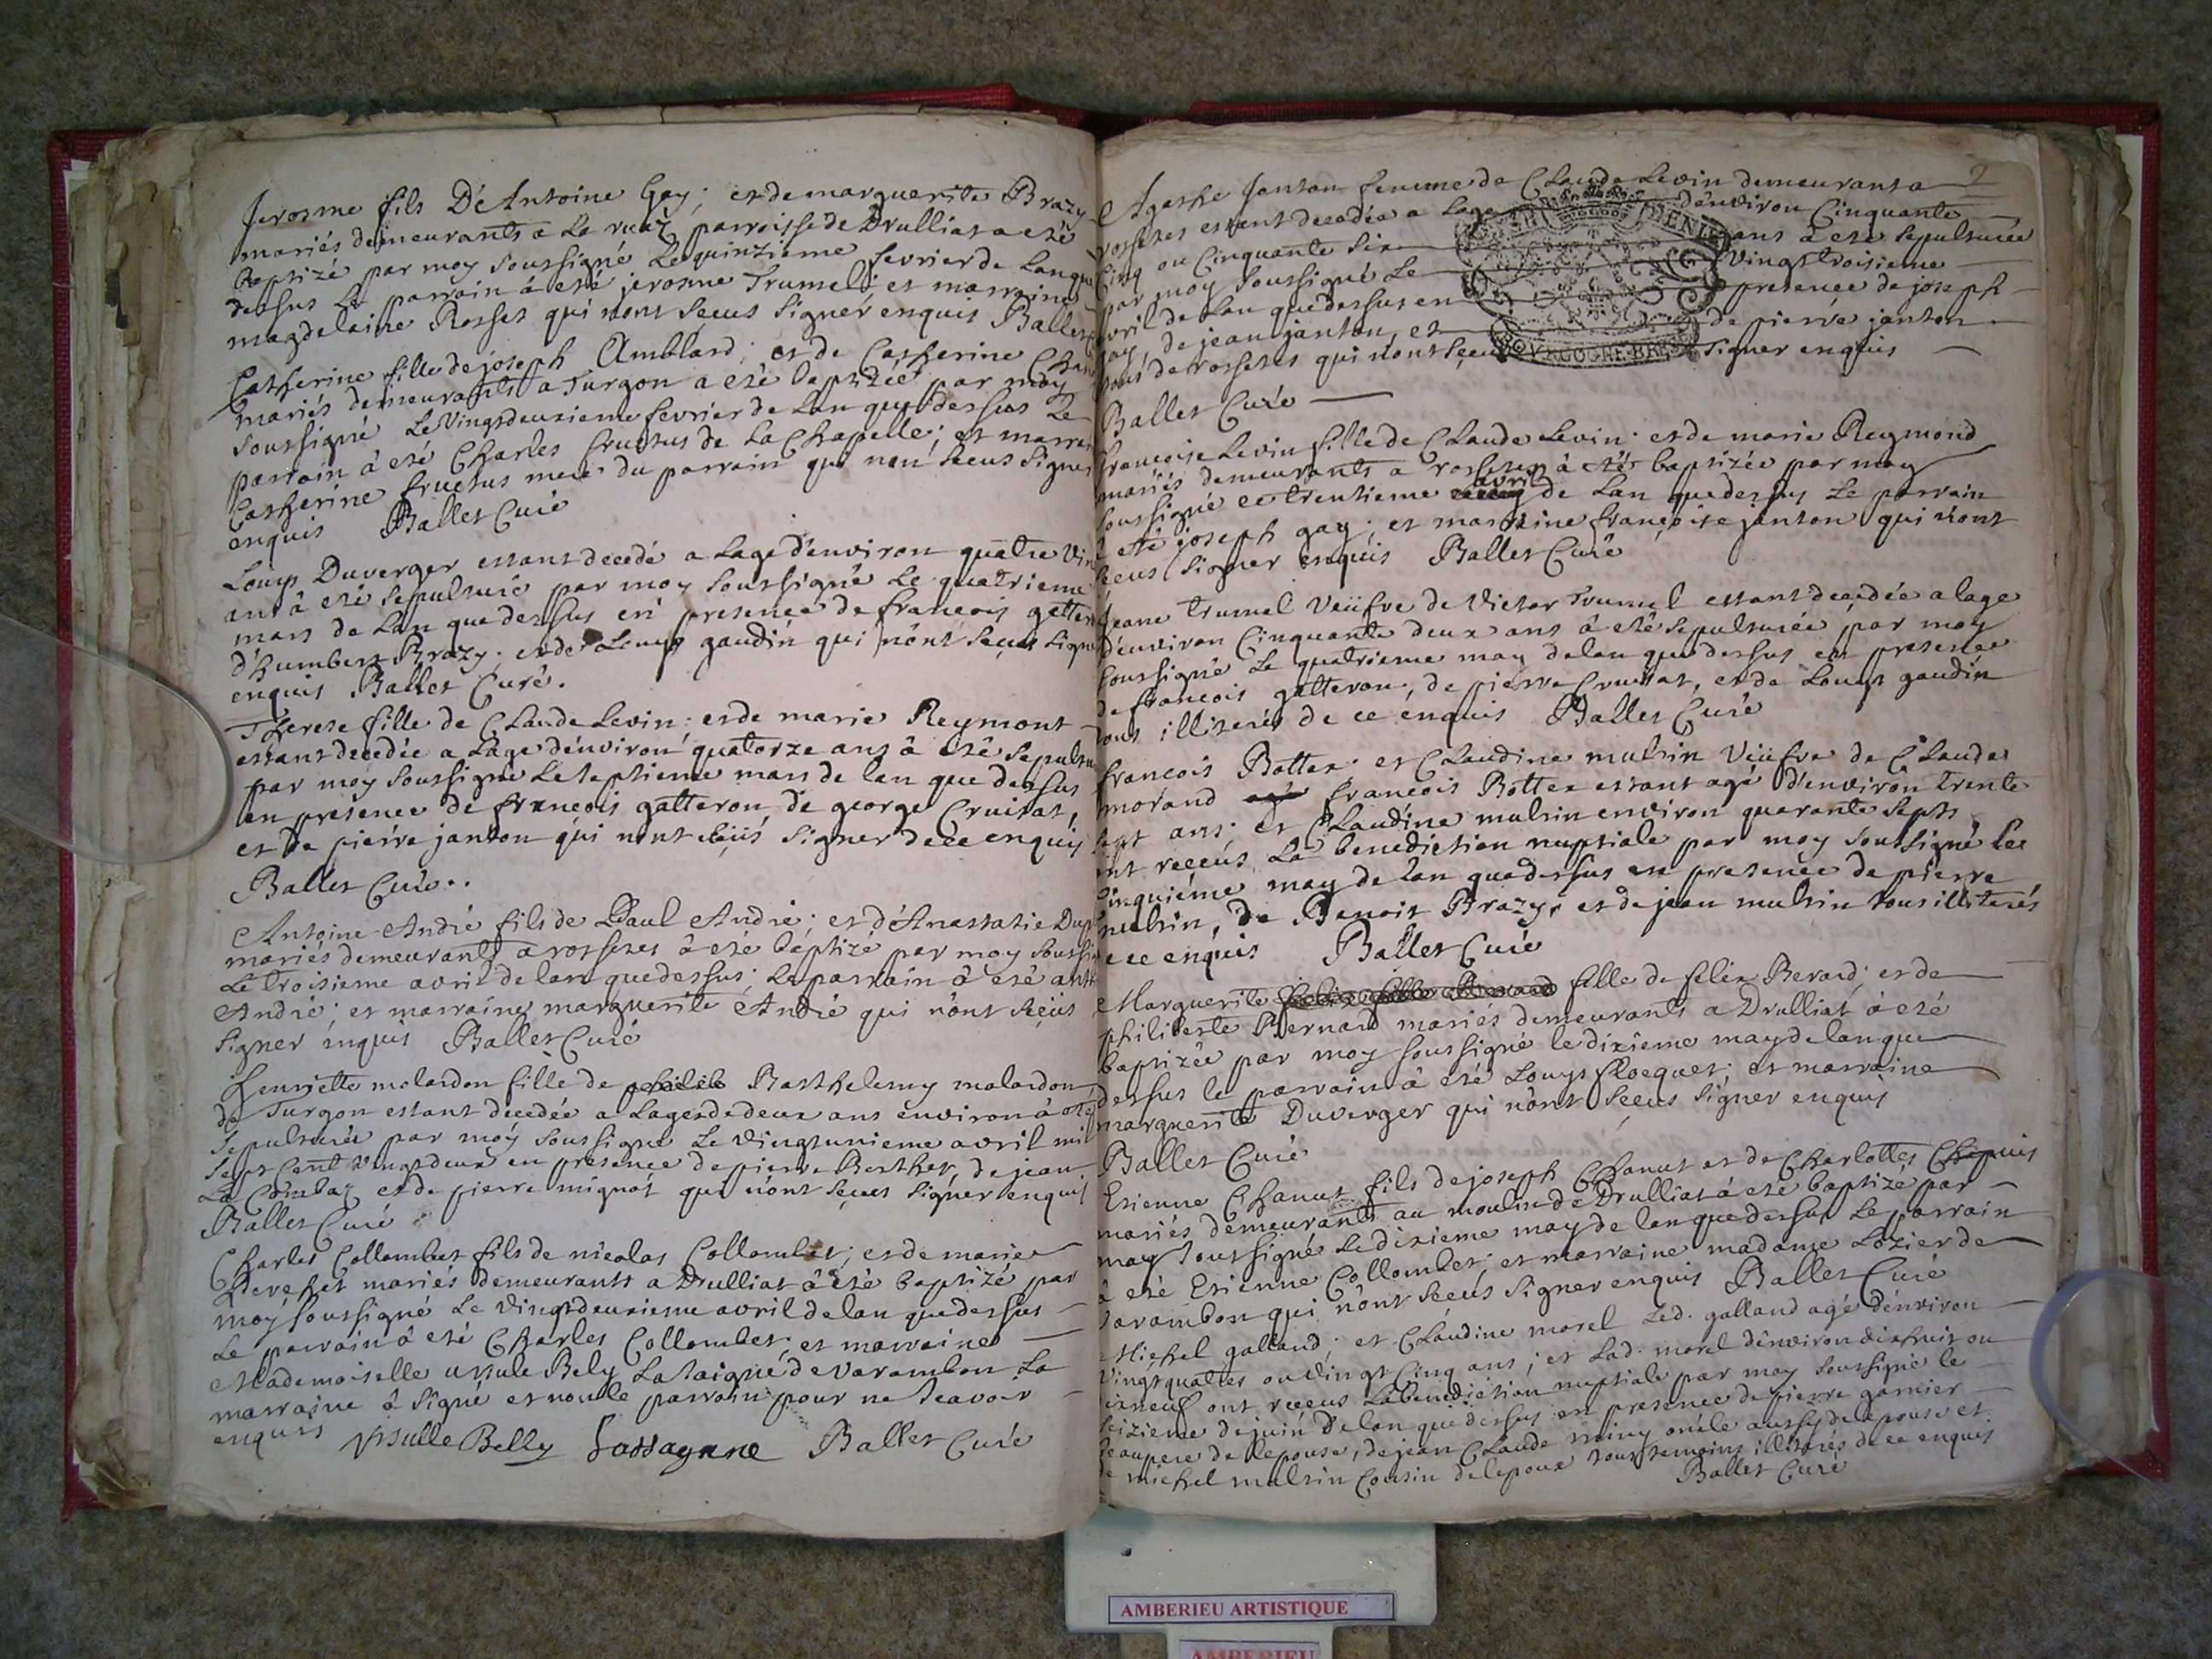 Jerosme fils D'Antoine Gay; et de marguerite Brazy
mariés demeurants a La ruaz parroisse de Drulliat a esté
baptizé par moy soussigné Le quinzieme fevrier de Lan que
dessus Le parrain à esté jerosme Trumel; et marraine
magdelaine Rosset qui nont sçeus signer enquis Ballet
Catherine fille de joseph Amblard; et de Catherine
mariés demeurants a Turgon a esté baptizée par moy
soussigné Le Vingtdeuxieme fevrier de Lan que dessus Le
parrain à esté Charles fructus de La Chapelle; et marraine
Catherine fructus mere du parrain qui non sceus signer
enquis Ballet Curé
Louys Duverger estant decedé a Lage d'environ quatre vin
ans à esté sepulturé par moy soussigné Le quatrieme
mars de Lan que dessus en presence de francois galteron
d'humbert Brazy; et de Louys gaudin qui nont sçeus signer
enquis Ballet Curé.
Therese fille de Claude Levin; et de marie Reymont
estant decedée a Lage d'environ quatorze ans à esté sepultu
par moy soussigné Le septieme mars de lan que dessus
en presence de francois galteron de george Cruisat,
et de pierre janton qui nont sçeüs signer de ce enquis
Ballet Curé..
Antoine André fils de Paul André; et d'Anastasie
mariés demeurants a rossetes à esté baptizé par moy soussi
Le troisieme avril de lan que dessus; Le parrain à esté
André; et marraine marguerite André qui nont sceus
signer enquis Ballet Curé
Henriette malardon fille de Barthelemy malardon
de Turgon estant decedée a Lage de deux ans environ à esté
sepulturée par moy soussigné Le vingtunieme avril mil
sept cent vingtdeux en presence de pierre Berthet, de jean
La Combaz et de pierre mignot qui nont sçeus signer enquis
Ballet Curé
Charles Collombet fils de nicolas Collombet; et de marie
mariés demeurants a Drulliat à esté baptizé par
moy soussigné Le vingtdeuxieme avril de lan que dessus
Le parrain à esté Charles Collombet; et marraine
Mademoiselle ursule Bely de varambon La
marraine à signé et non le parrain pour ne scavoir
enquis Ursulle Belly Lassagne Ballet Curé
Agathe Janton femme de Claude Levin demeurant a 2
rossetes estant decedée a Lage d'environ Cinquante
Cinq ou Cinquante six ans à esté sepulturée
par moy soussigné Le Vingttroisieme
avril de Lan que dessus en presence de joseph
gay, de jean janton, et de pierre janton
tous de rossetes qui nont sçeus signer enquis
Ballet Curé
francoise Levin fille de Claude Levin; et de marie Reymond
mariés demeurants a rossetes à esté baptizée par moy
soussigné ce trentieme avril de Lan que dessus Le parrain
à esté joseph gay; et marraine francoise janton qui nont
sceus signer enquis Ballet Curé
Jeane trumel Veüfve de Victor Trumel estant decedée a lage
d'environ Cinquante deux ans à esté sepulturée par moy
soussigné Le quatrieme may de lan que dessus en presence
de francois galteron, de pierre Cruisat, et de Louys gaudin
tous illiterés de ce enquis Ballet Curé
francois Bottex; et Claudine multin Veüfve de Claude
morand francois Bottex estant agé d'environ trente
sept ans; et Claudine multin environ quarante sept
ont receus La benediction nuptiale par moy soussigné Le
Cinquiéme may de lan que dessus en presence de pierre
multin, de Benoit Brazy, et de jean multin tous illiterés
de ce enquis Ballet Curé
Marguerite fille de felix Berard; et de
philiberte Bernard mariés demeurants a Drulliat à esté
baptizée par moy soussigné le dixieme may de lan que
dessus le parrain à esté Louys Flocquet; et marraine
marguerite Duverger qui nont sçeus signer enquis
Ballet Curé
Etienne Chanut fils de joseph Chanut et de Charlotte Chapuis
mariés demeurants au moulin de Drulliat à esté baptizé par
moy soussigné Le dixieme may de lan que dessus Le parrain
à esté Etienne Collombet; et marraine madame Lozier de
varambon qui nont sceus signer enquis Ballet Curé
Michel galland; et Claudine morel Led. galland agé d'environ
Vingtquatre ou vingt Cinq ans; et Lad. morel d'environ dixhuit ou
dixneuf ont receus La benediction nuptiale par moy soussigné le
seizieme de juin de lan que dessus en presence de pierre garnier
beaupere de lepouse, de jean Claude miny oncle aussy de lepouse et
de michel multin Cousin de lepoux tous temoins illiterés de ce enquis
Ballet Curé
AMBERIEU ARTISTIQUE
AMBERIEU